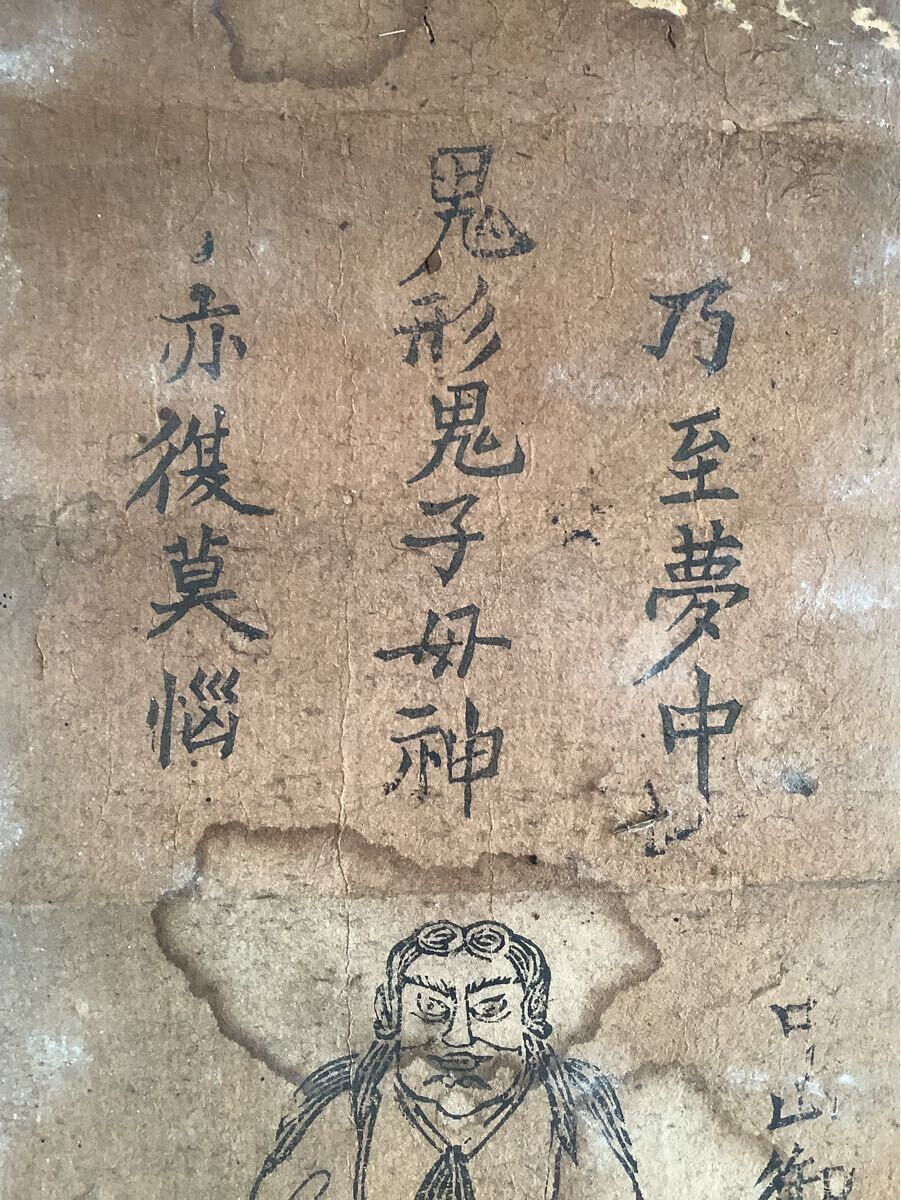 乃至夢中
鬼形鬼子母神
亦復莫惱